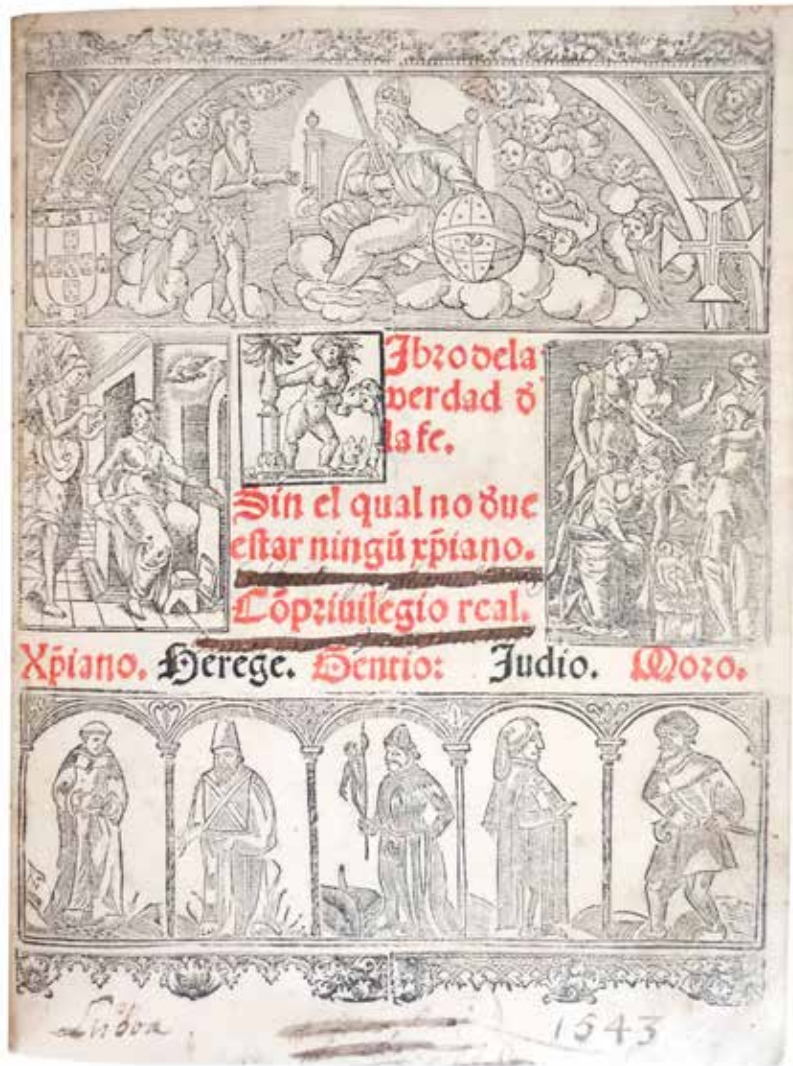 Jbro dela
verdad d̕
la fe.
Sin el qual no d̕ue
estar ningũ xp̃iano.
Cõpriuilegio real.
Xp̃iano. Herege. Gentio: Judio. Moro.
Lisboa. 1543